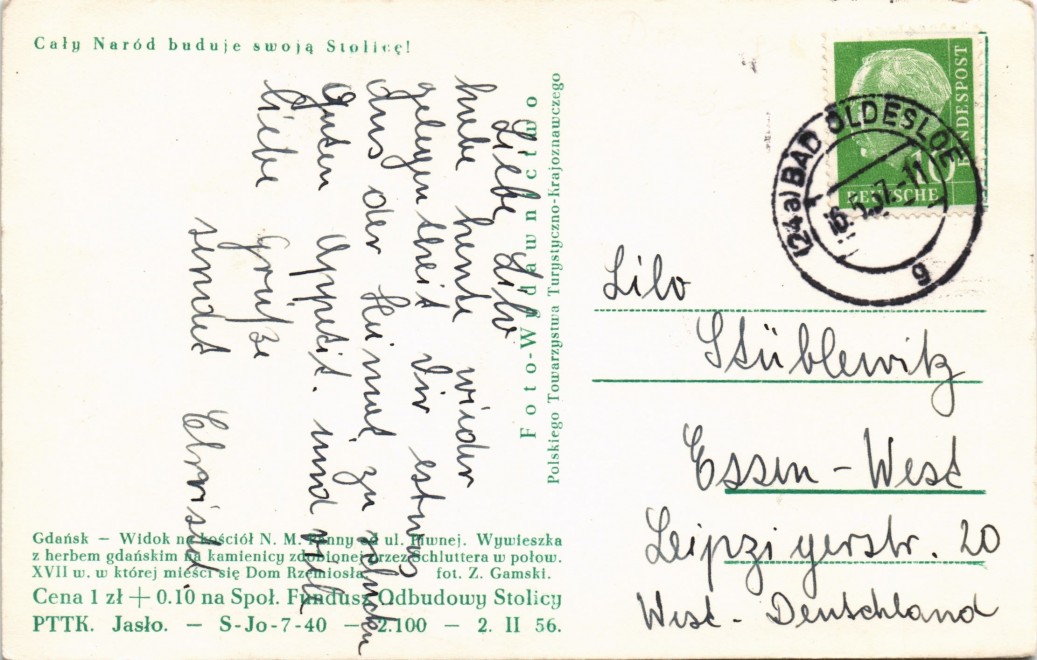 Cały Naród buduje swoją Stolicę!
Liebe Lilo
habe heute wider
gelegentheit dir etwas
aus der Heimat zu schicken
guten Appetit. und viele
liebe Grüße
sendet Christel
Foto-Wydawnictwo
Polskiego Towarzystwa Turystyczno-Krajoznawczego
DEUTSCHE
BUNDESPOST
10
(24a) BAD OLDESLOE
16.5.57.-11
g
Lilo
Stüblewitz
Essen - West
Leipzigerstr. 20
West - Deutschland
Gdańsk — Widok na kościół N. M. Panny od ul. Piwnej. Wywieszka
z herbem gdańskim na kamienicy zdobionej przez Schluttera w połow.
XVII w. w której mieści się Dom Rzemiosła. fot. Z. Gamski.
Cena 1 zł + 0.10 na Społ. Fundusz Odbudowy Stolicy
PTTK. Jasło. — S-Jo-7-40 — 2.100 — 2. II 56.